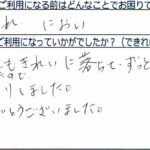 ご利用になる前はどんなことでお困りで
れ　におい
ご利用になっていかがでしたか?（できれ
もきれいに落ちて、ずっと
ので
りしました。
とうございました。